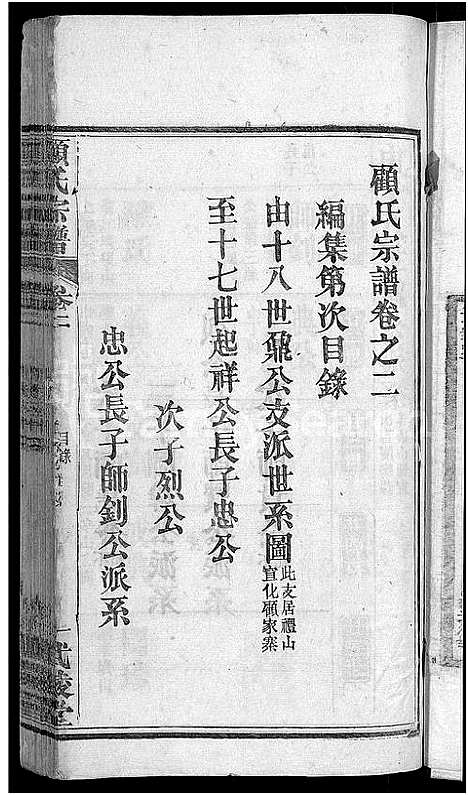 顧氏宗譜卷之二
編集第次目錄
由十八世鼐公支派世系圖
此支居禮山
宣化顧家寨
至十七世起祥公長子忠公
次子烈公
忠公長子師釗公派系
顧氏宗譜
卷二
目錄
一
武陵堂